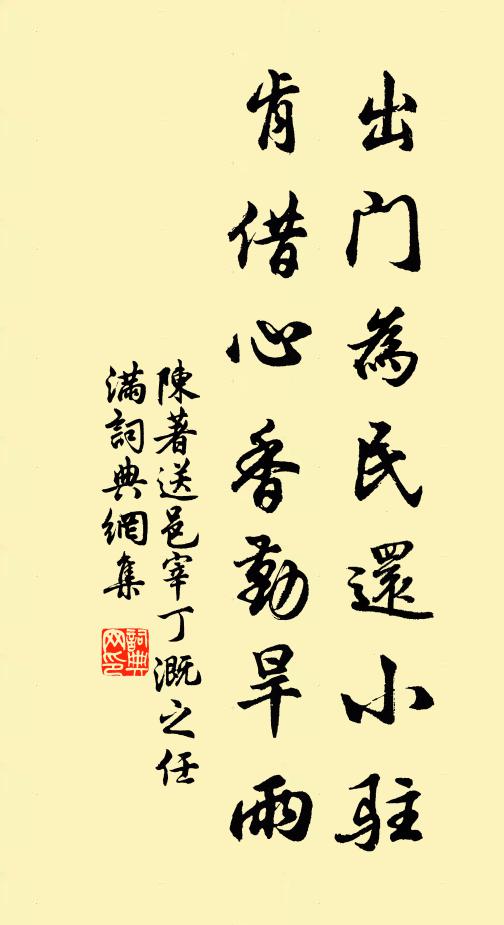 出门為民還小駐
肯借心香勤旱雨
陳著送邑宰丁溉之任
满詞典網集
詞典网印